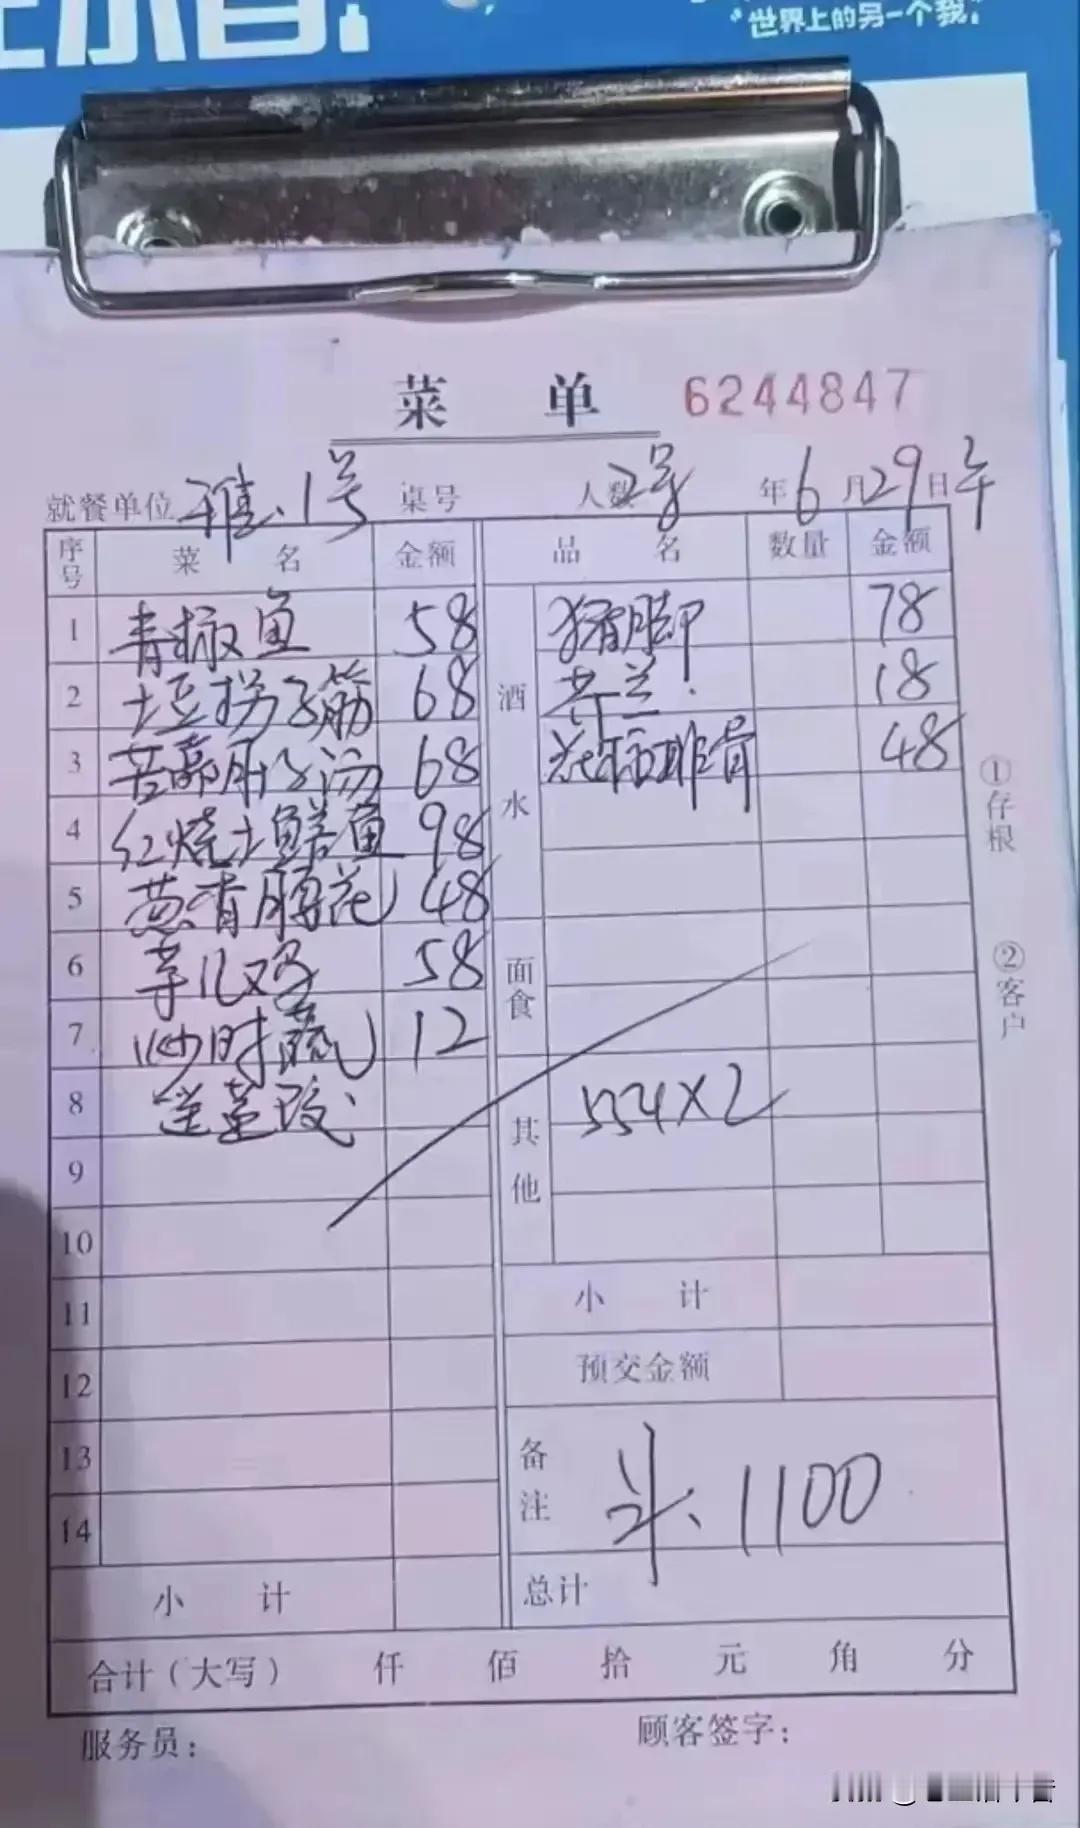 “世界上的另一个我”
菜 单 6244847
就餐单位 雅.1号 桌号 人数 2号 年 6 月 29 日 午
序号 菜 名 金额 品 名 数量 金额
1 青椒鱼 58 酒水 猪脚 78
2 土豆拐子筋 68 芥兰. 18
3 苦 肚子汤 68 排骨 48
4 红烧土鳝鱼 98
5 葱香腰花 48
6 芋儿鸡 58 面食
7 炒时蔬 12
8 其他 554×2
9
10
11 小 计
12 预交金额
13 备注 斗、1100
14
小 计 总计
合计（大写） 仟 佰 拾 元 角 分
服务员： 顾客签字：
①存根
②客户